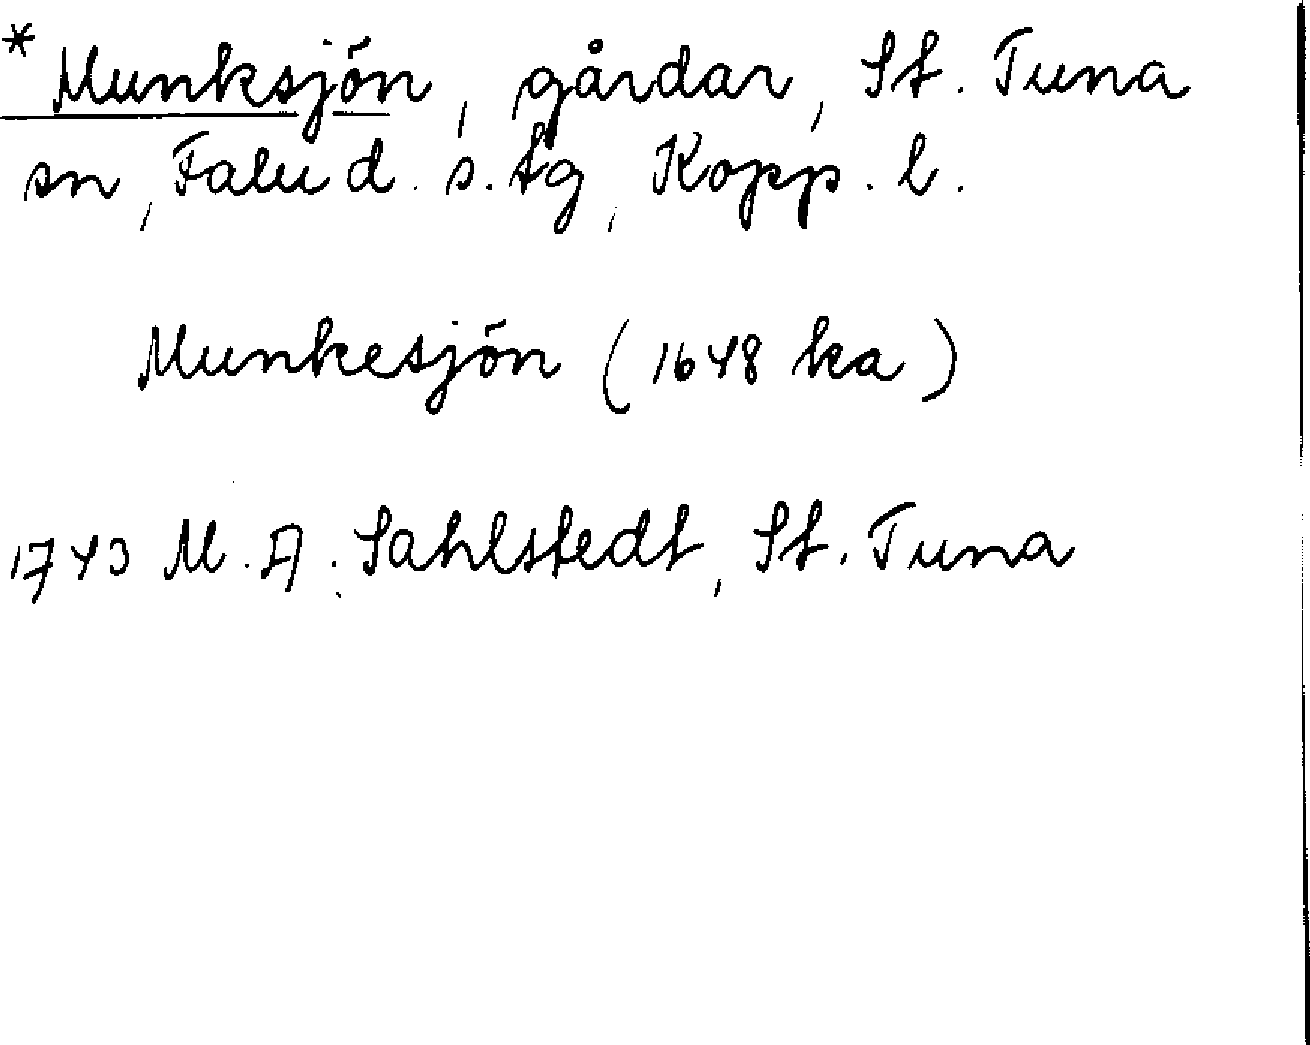 * Munksjön, gårdar, St. Tuna
sn, Falu d. s. tg, Kopp. l.
Munkesjön (1648 ka)
1743 M. A. Sahlstedt, St. Tuna